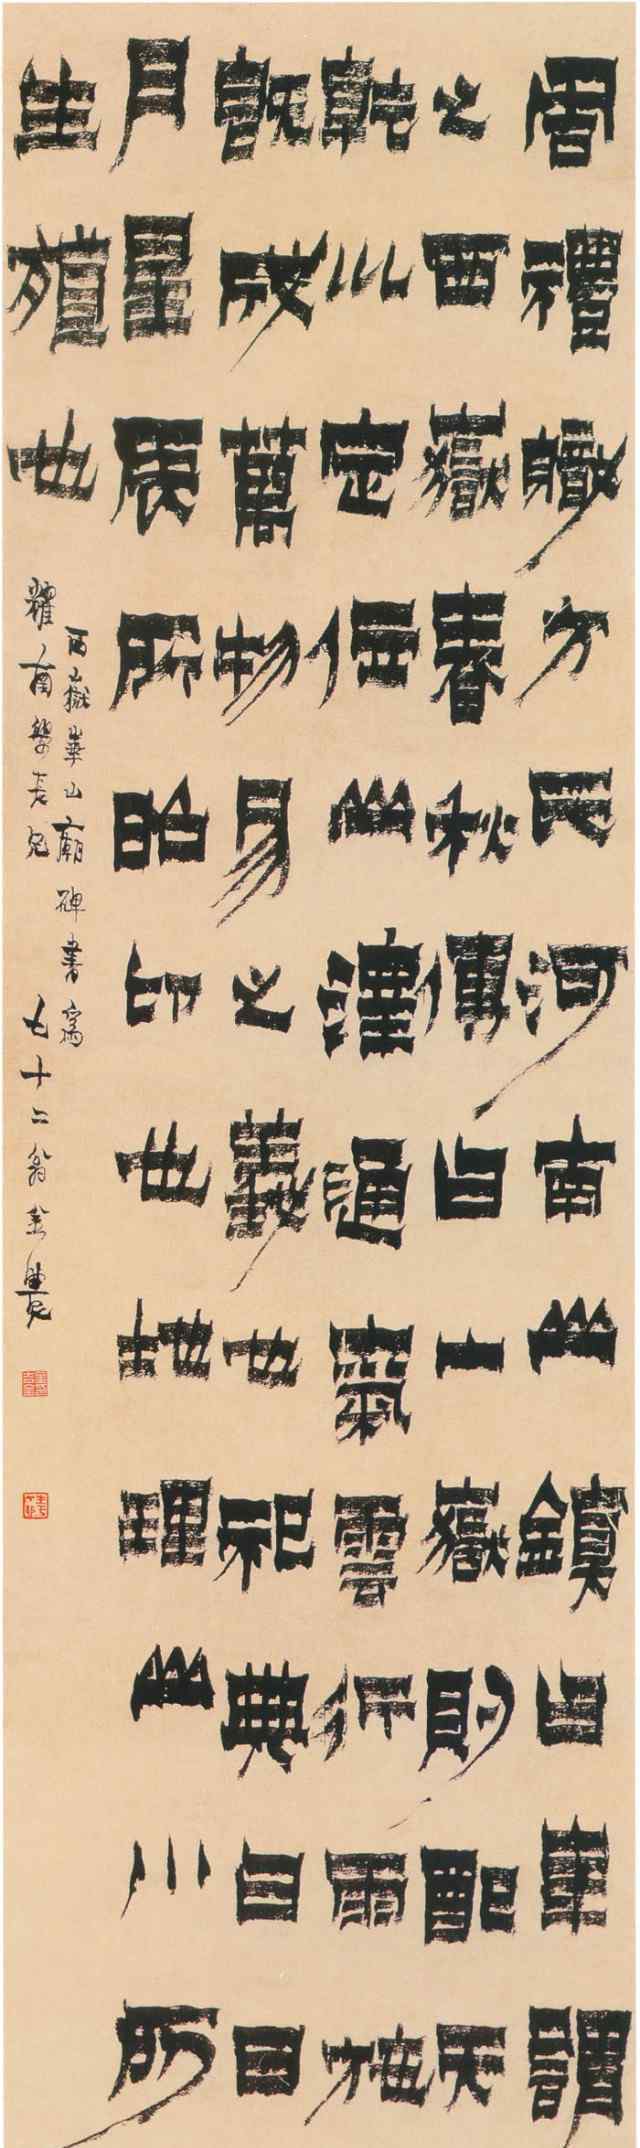 周禮職方氏河南山鎮曰華謂
之西嶽春秋傳曰山嶽則配天
乾巛定位山澤通氣雲行雨施
既成萬物易之義也祀典曰日
月星辰所昭卬也地理山川所
生殖也
西嶽華山廟碑書為
耀南學長兄 七十二翁金農